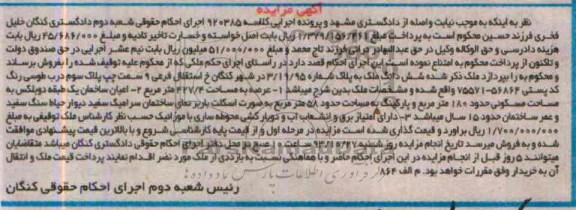 آگهی مزایده
نظر به اینکه به موجب نیابت واصله از دادگستری مشهد و پرونده اجرایی کلاسه ۹۲۰۳۸۵ اجرای احکام حقوقی شعبه دوم دادگستری کنگان خلیل
فخری فرزند حسین محکوم است به پرداخت مبلغ ریال بابت اصل خواسته و خسارت تاخیر تادیه و مبلغ ۴۵/۶۸۶/۰۰۰ ریال بابت
هزینه دادرسی و حق الوکاله وکیل در حق عبدالبهادر فرزند تاج محمد و مبلغ ۵۱/۰۰۰/۰۰۰ میلیون ریال بابت نیم عشر اجرایی در حق صندوق دولت
و تاکنون از پرداخت محکوم به امتناع نموده است این اجرای احکام قصد دارد در راستای اجرای حکم ملکی که از محکوم علیه توقیف شده را بفروش برساند
و محکوم به را بپردازد ملک ذکر شده شش دانگ ملک به پلاک شماره ۳/۱۹/۹۵ در شهر کنگان خ استقلال فرعی ۹ سمت چپ پلاک سوم درب طوسی رنگ
کد پستی ۵۶۸۶۴-۷۵۵۷۱ واقع شده و مشخصات ملک بدین شرح میباشد ۱- عرصه به مساحت ۴۲۷/۴ متر مربع ۲- اعیان ساختمان یک طبقه دوبلکس به
مساحت مسکونی حدود ۱۸۰ متر مربع و پارکینگ به مساحت حدود ۵۸ متر مربع به صورت اسکلت باربر نمای ساختمان سرامیک سفید دیوار حیاط سنگ سفید
و عمر ساختمان حدود ۱۵ سال میباشد ۳- دارای امتیاز برق و انشعاب آب و دیوار کشی محوطه سازی با موزائیک حسب نظر کارشناس ملک توقیفی به مبلغ
۱/۷۰۰/۰۰۰/۰۰۰ ریال برآورد و قیمت گذاری شده است مزایده در مرحله اول و از قیمت پایه کارشناسی شروع و با بالاترین قیمت پیشنهادی موافقت
شده و به فروش میرسد تاریخ انجام مزایده روز محل دفتر اجرای احکام حقوقی دادگستری کنگان میباشد متقاضیان
میتوانند ۵ روز قبل از انجام مزایده در این اجرای احکام حاضر و با هماهنگی نسبت به بازدیدی از ملک مورد نضر اقدام نمایند پرداخت قیمت ملک و انتقال
آن به خریدار وفق مقررات خواهد بود. م الف ۸۶۴
رئیس شعبه دوم اجرای احکام حقوقی کنگان